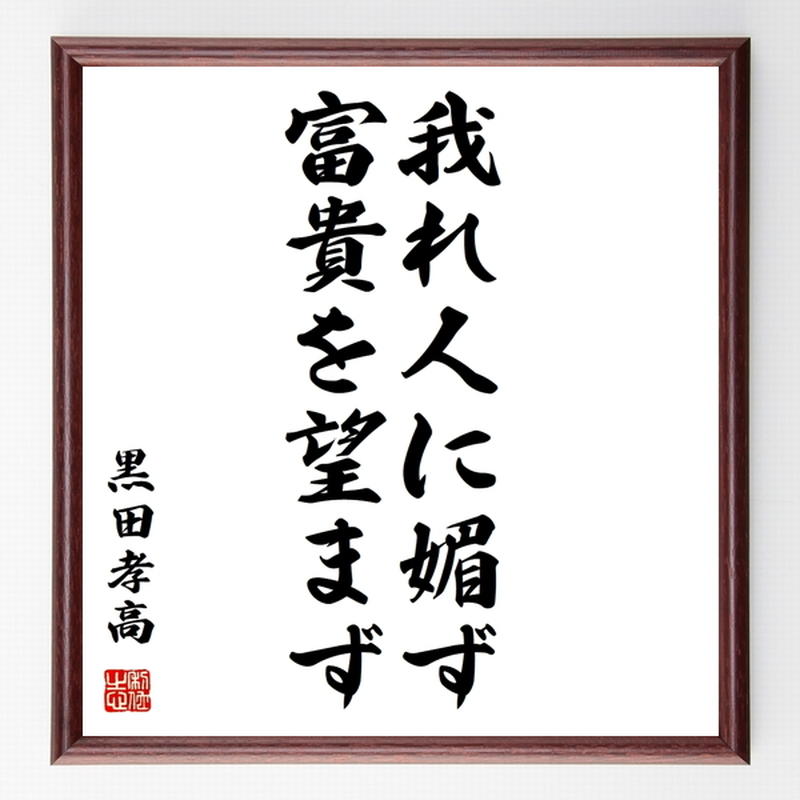 我れ人に媚ず
富貴を望まず
黒田孝高